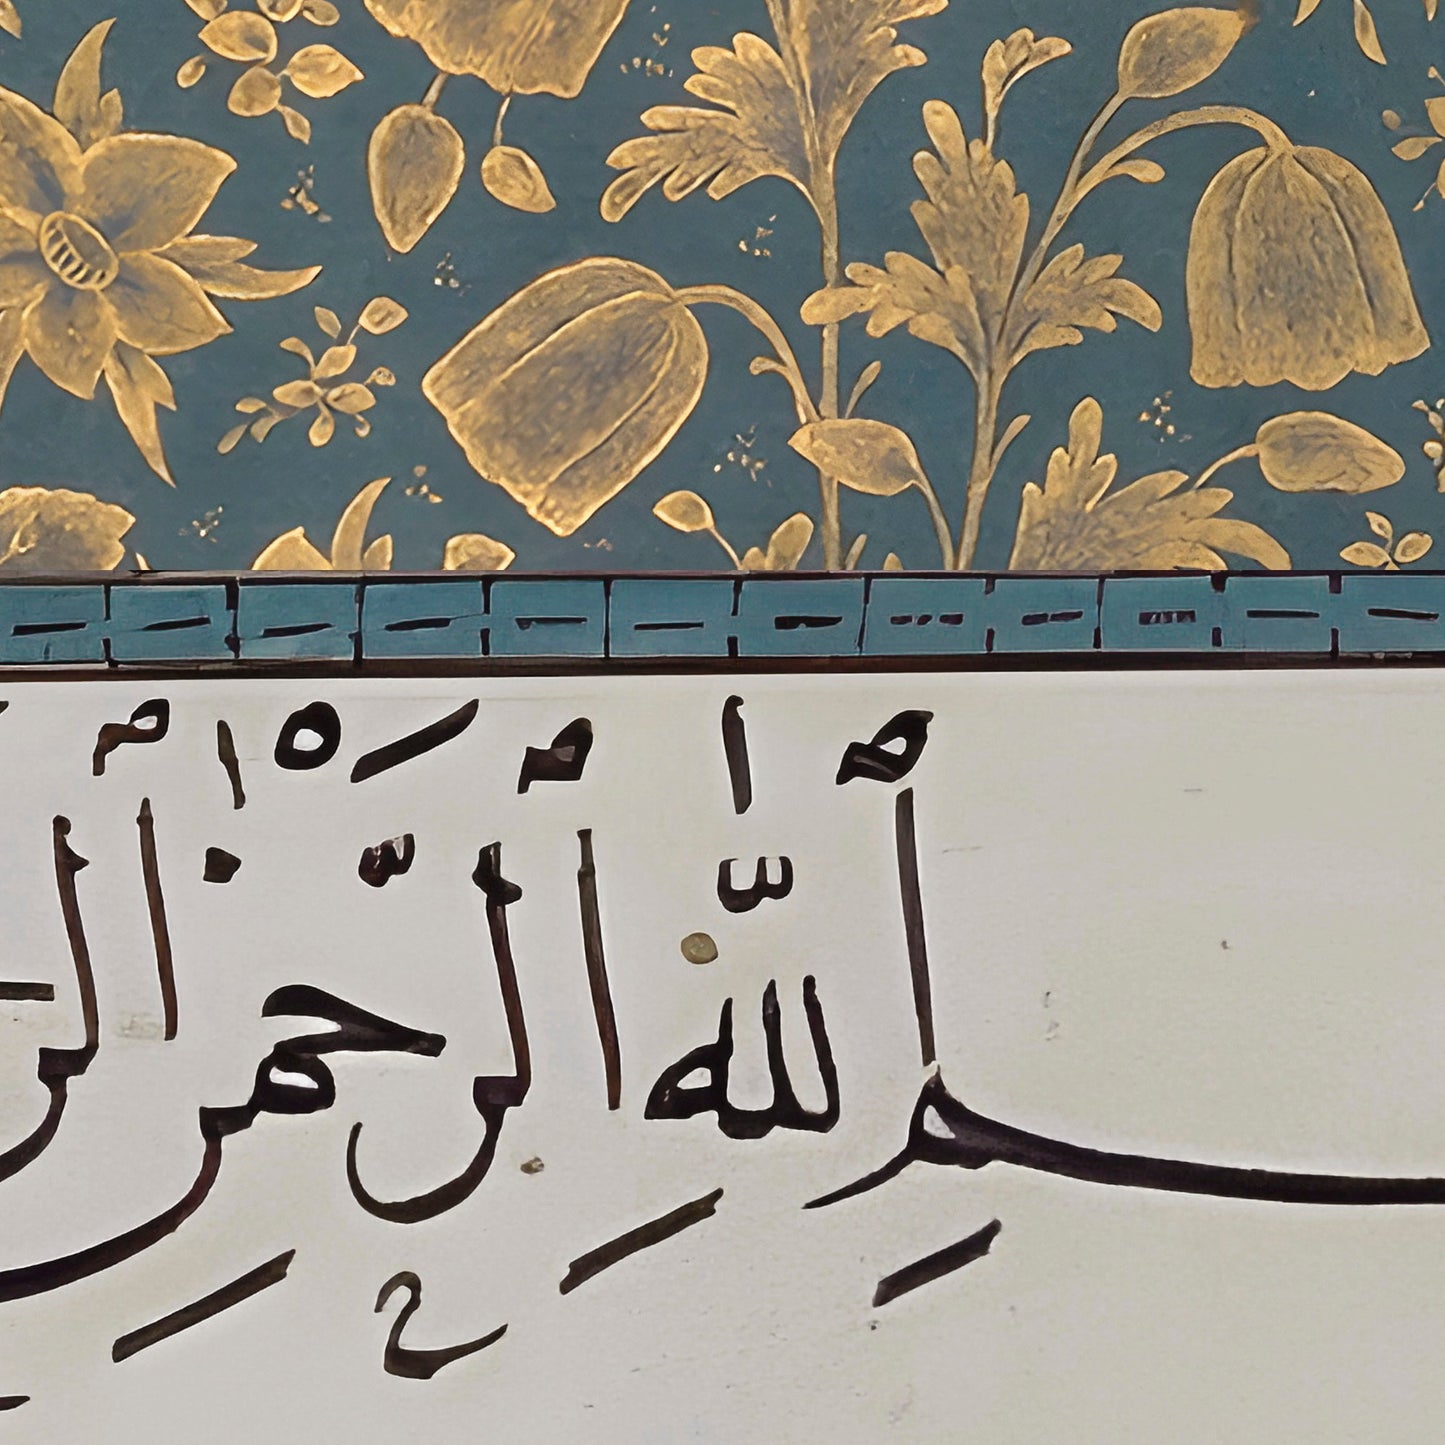 ـمِ اللّٰهِ الرَّحْمٰنِ الر